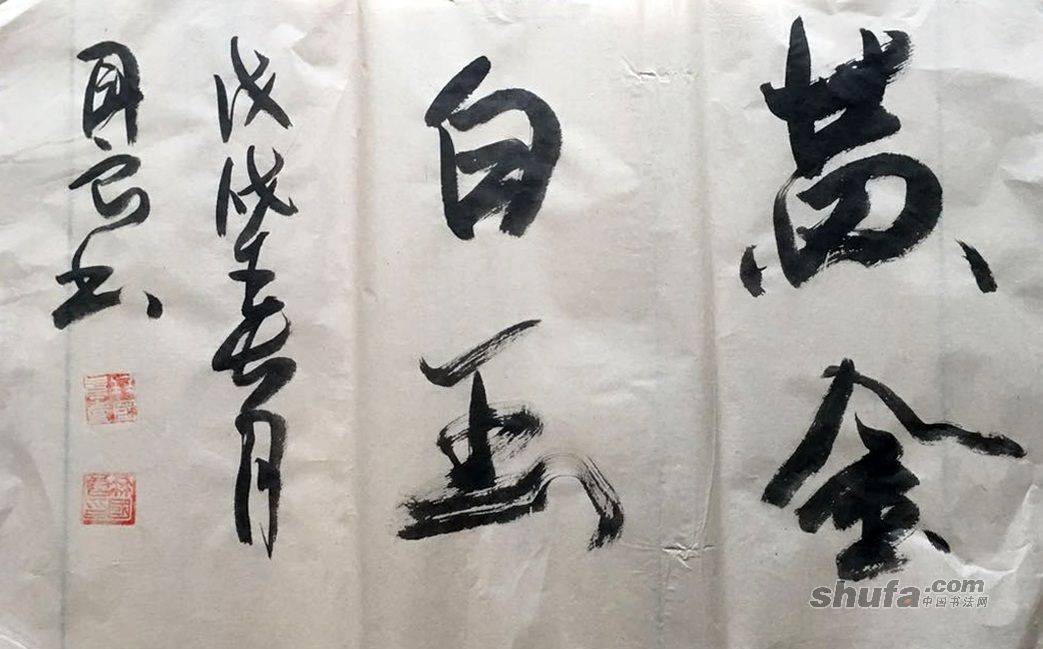 黄金
白玉
戊戌春月
国良书
shufa.com
中国书法网